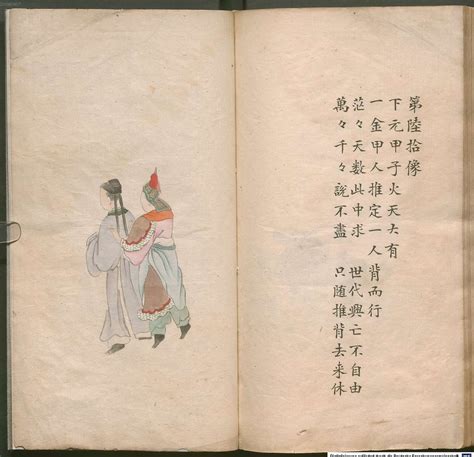 第陸拾像
下元甲子火天大有
一金甲人推定一人背而行
茫々天数此中求　世代興亡不自由
萬々千々説不盡　只随推背去来休